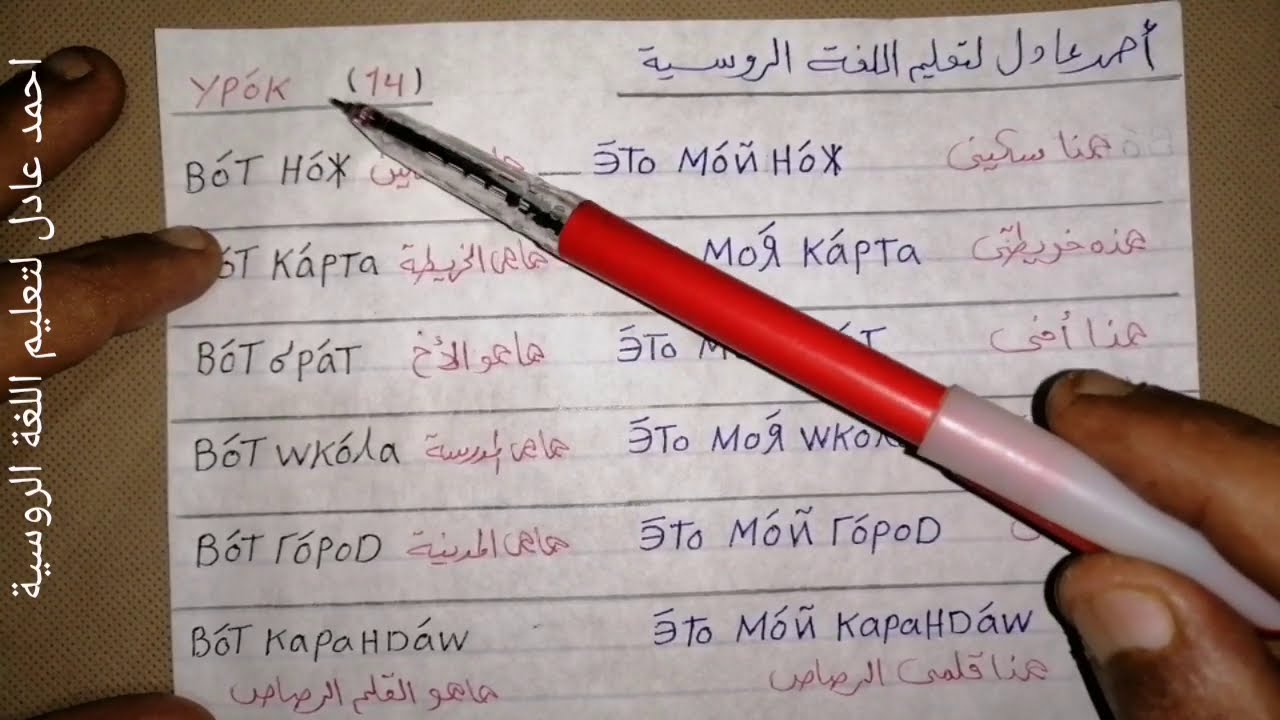 احمد عادل لتعليم اللغة الروسية
أحمد عادل لتعليم اللغة الروسية
УРОК (14)
ВОТ НОЖ ЭТО МОЙ НОЖ هذا سكيني
КАРТА هاهي الخريطة МОЯ КАРТА هذه خريطتي
ВОТ БРАТ هاهو الأخ ЭТО هذا أخي
ВОТ ШКОЛА هاهي المدرسة ЭТО МОЯ
ВОТ ГОРОД هاهي المدينة ЭТО МОЙ ГОРОД
ВОТ КАРАНДАШ ЭТО МОЙ КАРАНДАШ
هاهو القلم الرصاص هذا قلمي الرصاص